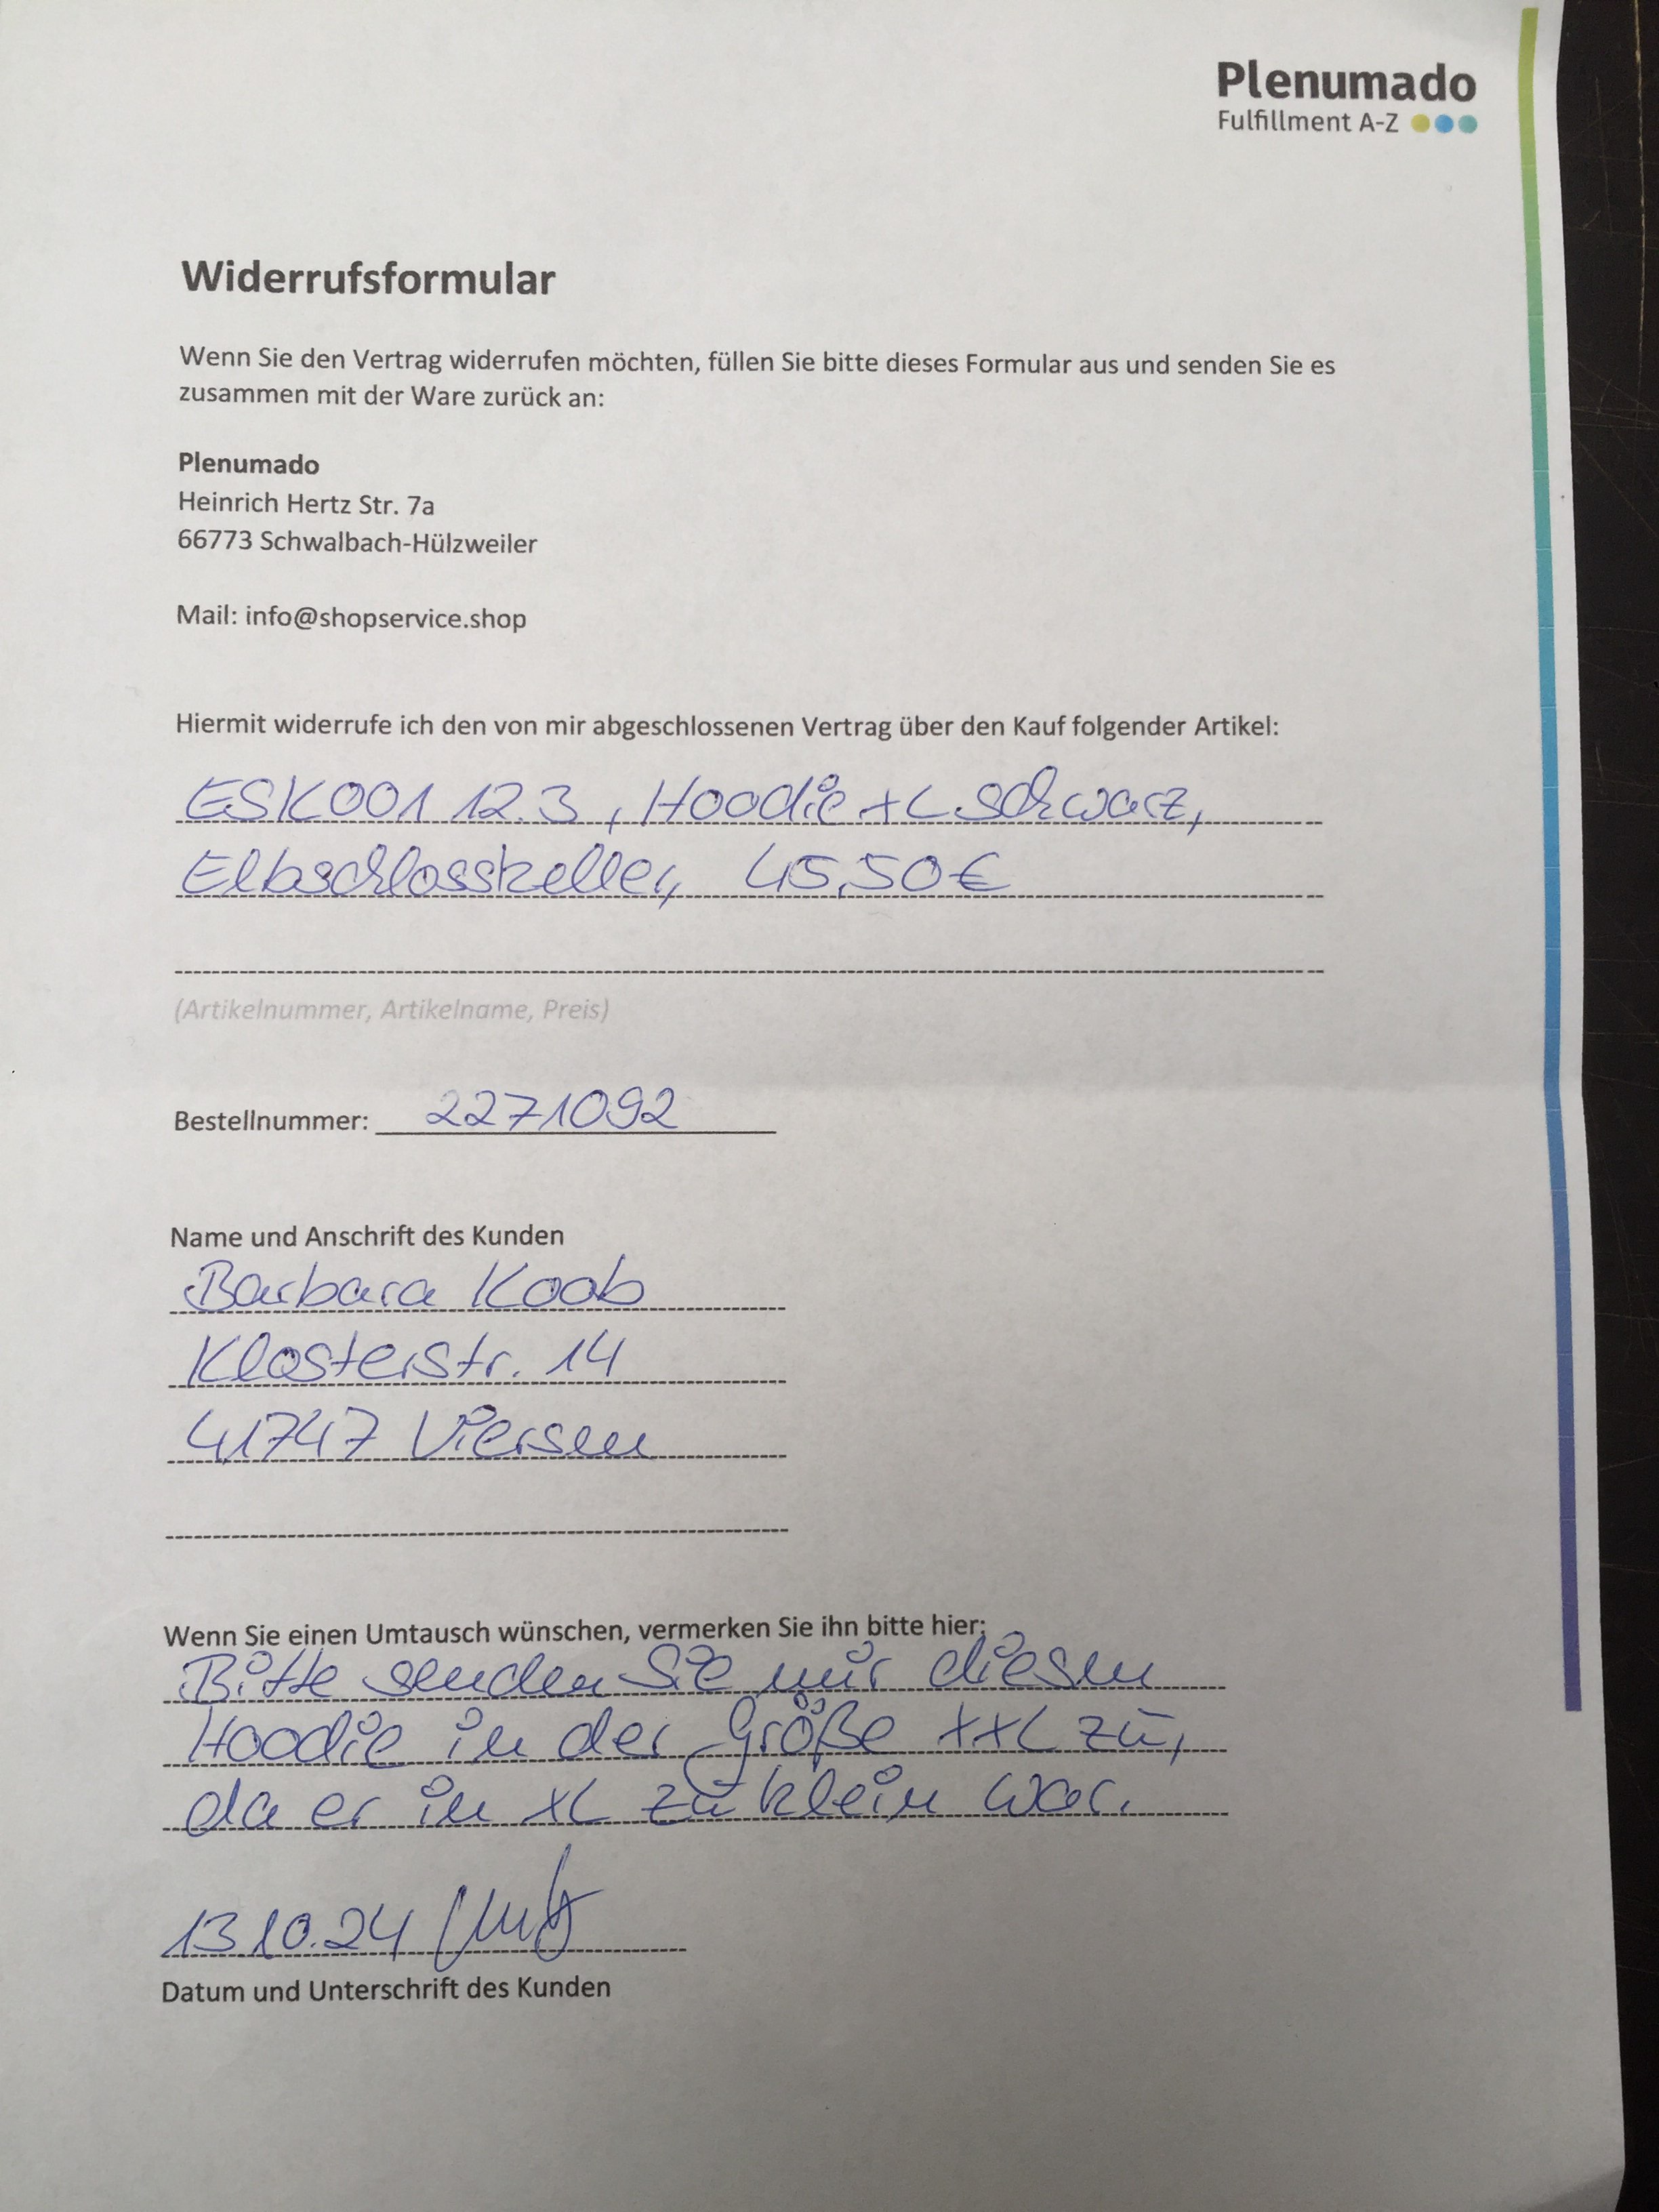 Plenumado
Fulfillment A-Z
Widerrufsformular
Wenn Sie den Vertrag widerrufen möchten, füllen Sie bitte dieses Formular aus und senden Sie es
zusammen mit der Ware zurück an:
Plenumado
Heinrich Hertz Str. 7a
66773 Schwalbach-Hülzweiler
Mail: info@shopservice.shop
Hiermit widerrufe ich den von mir abgeschlossenen Vertrag über den Kauf folgender Artikel:
ESK001 12.3, Hoodie XL schwarz,
Elbschlosskeller, 45,50€
(Artikelnummer, Artikelname, Preis)
Bestellnummer: 2271092
Name und Anschrift des Kunden
Barbara Koob
Klosterstr. 14
41747 Viersen
Wenn Sie einen Umtausch wünschen, vermerken Sie ihn bitte hier:
Bitte senden Sie mir diesen
Hoodie in der Größe XXL zu,
da er in XL zu klein war.
13.10.24
Datum und Unterschrift des Kunden